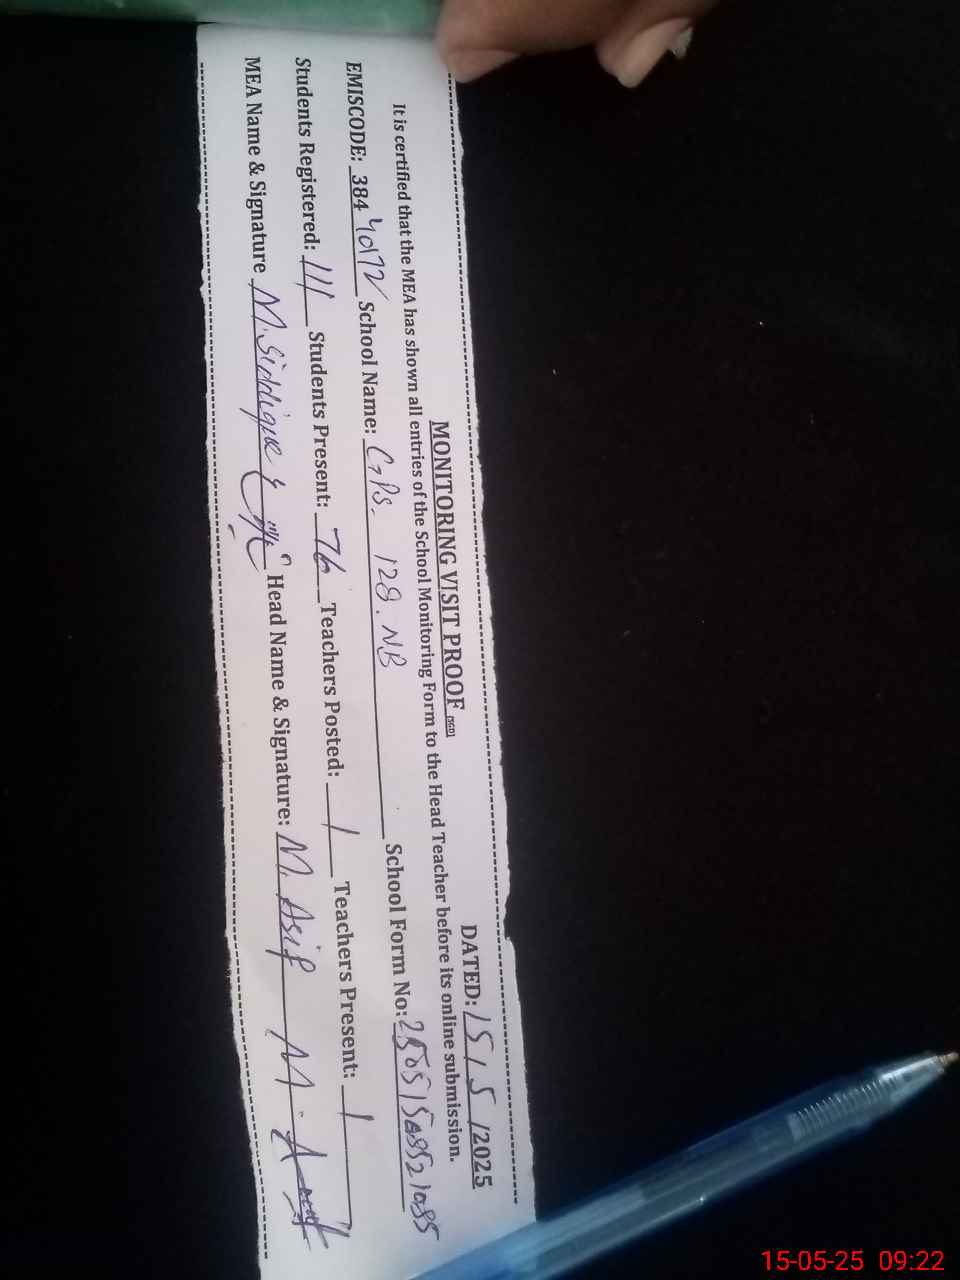 MONITORING VISIT PROOF DATED: 15/5/2025
It is certified that the MEA has shown all entries of the School Monitoring Form to the Head Teacher before its online submission.
EMISCODE: 38440172 School Name: GPS. 128. NB School Form No: 25051509521085
Students Registered: 111 Students Present: 76 Teachers Posted: 1 Teachers Present: 1
MEA Name & Signature M. Siddique Head Name & Signature: M. Asif M.
15-05-25 09:22